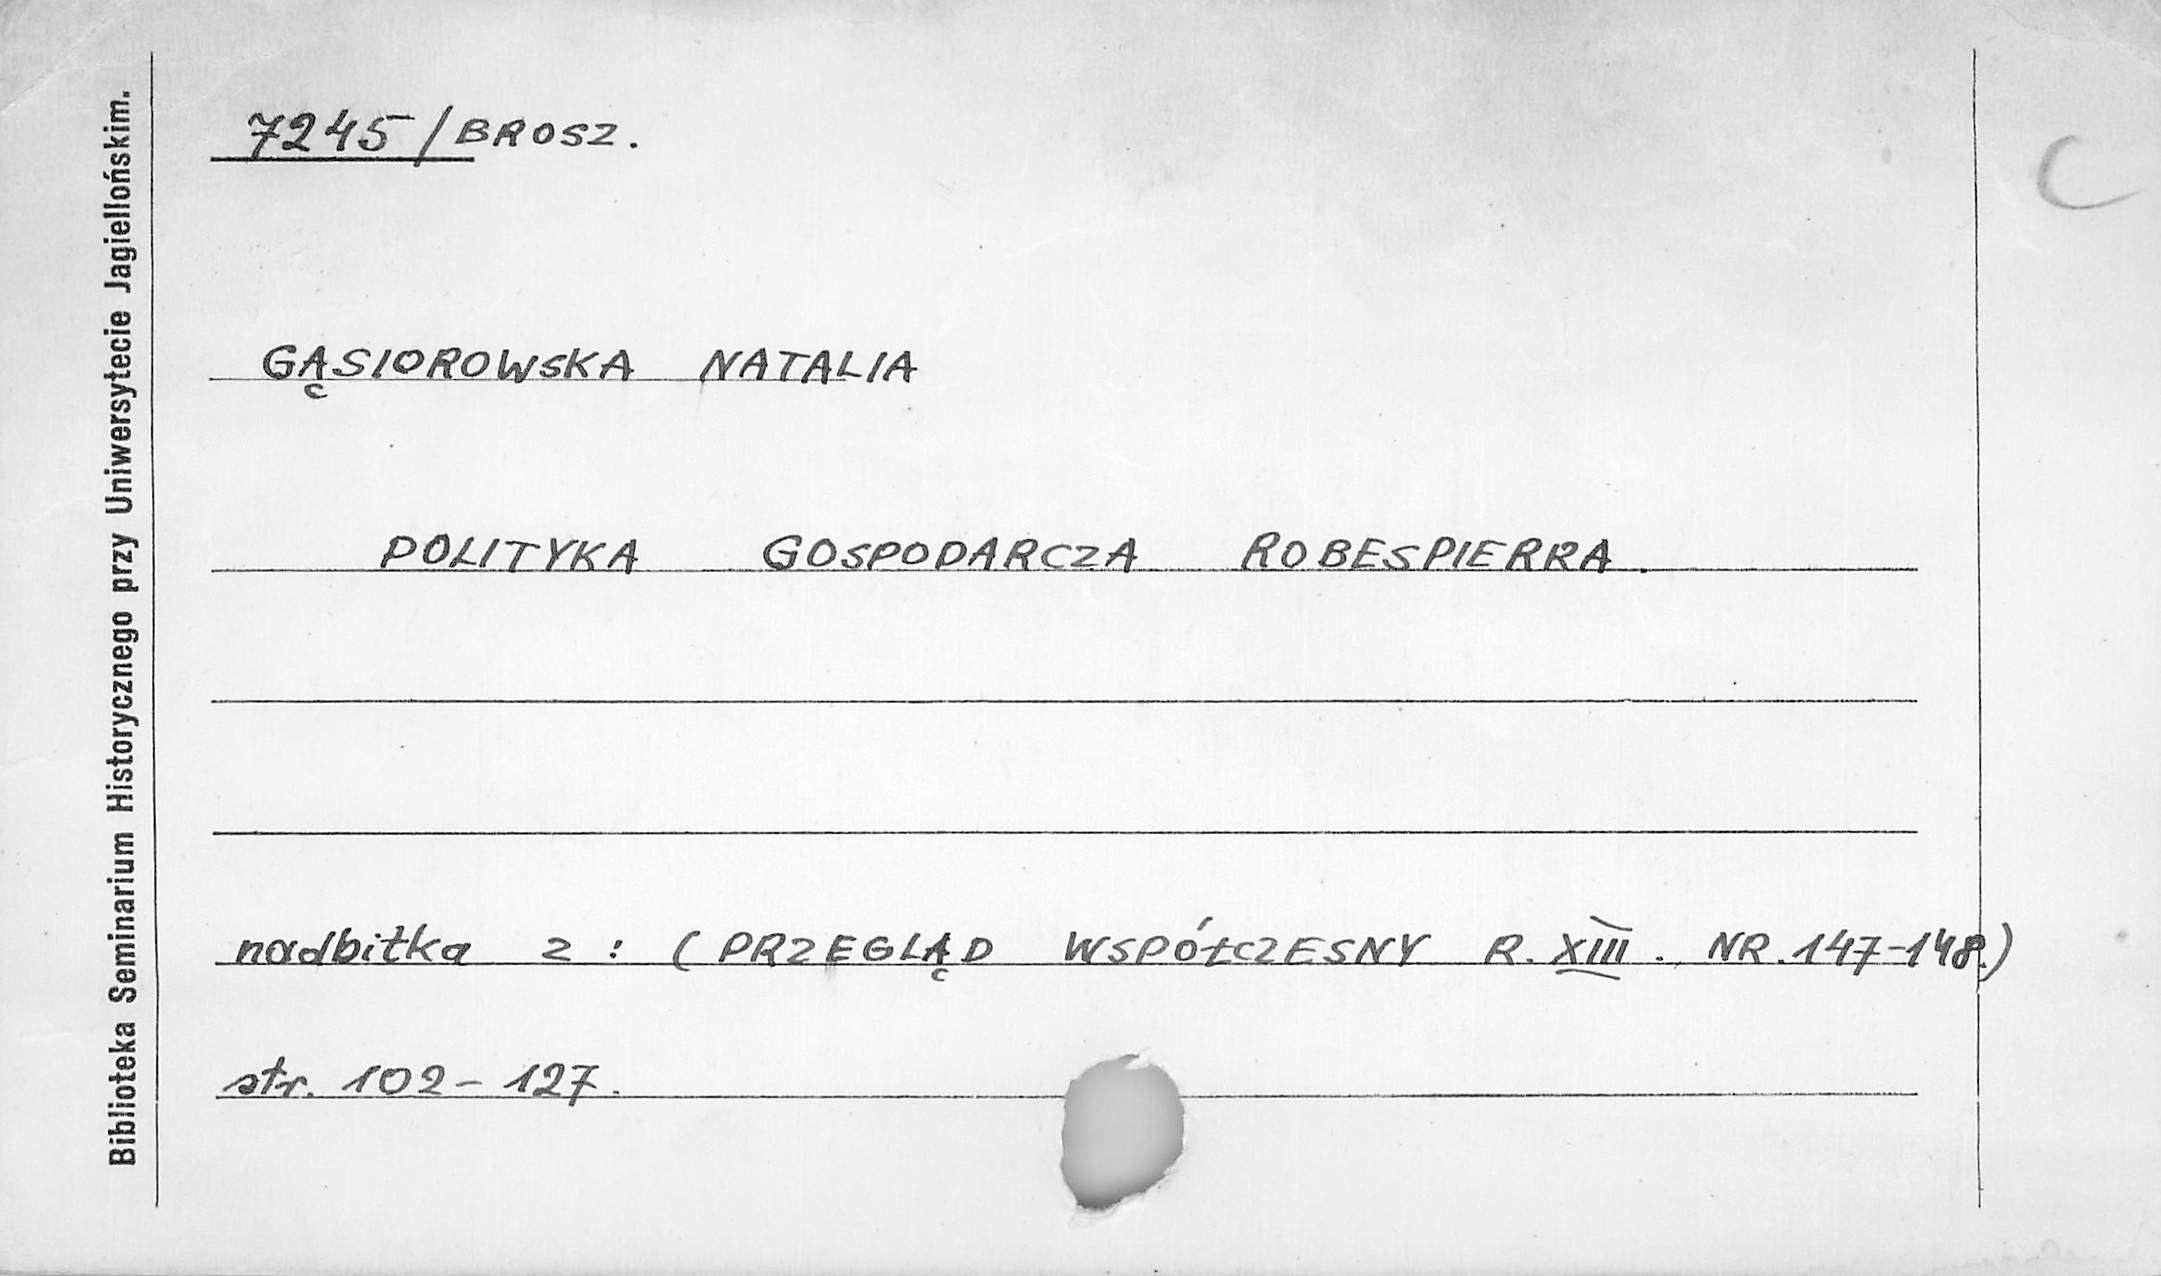 Biblioteka Seminarium Historycznego przy Uniwersytecie Jagiellońskim.
7245/BROSZ.
C
GĄSIOROWSKA NATALIA
POLITYKA GOSPODARCZA ROBESPIERRA.
nadbitka z: (PRZEGLĄD WSPÓŁCZESNY R. XIII. NR. 147-148.)
str. 102-127.